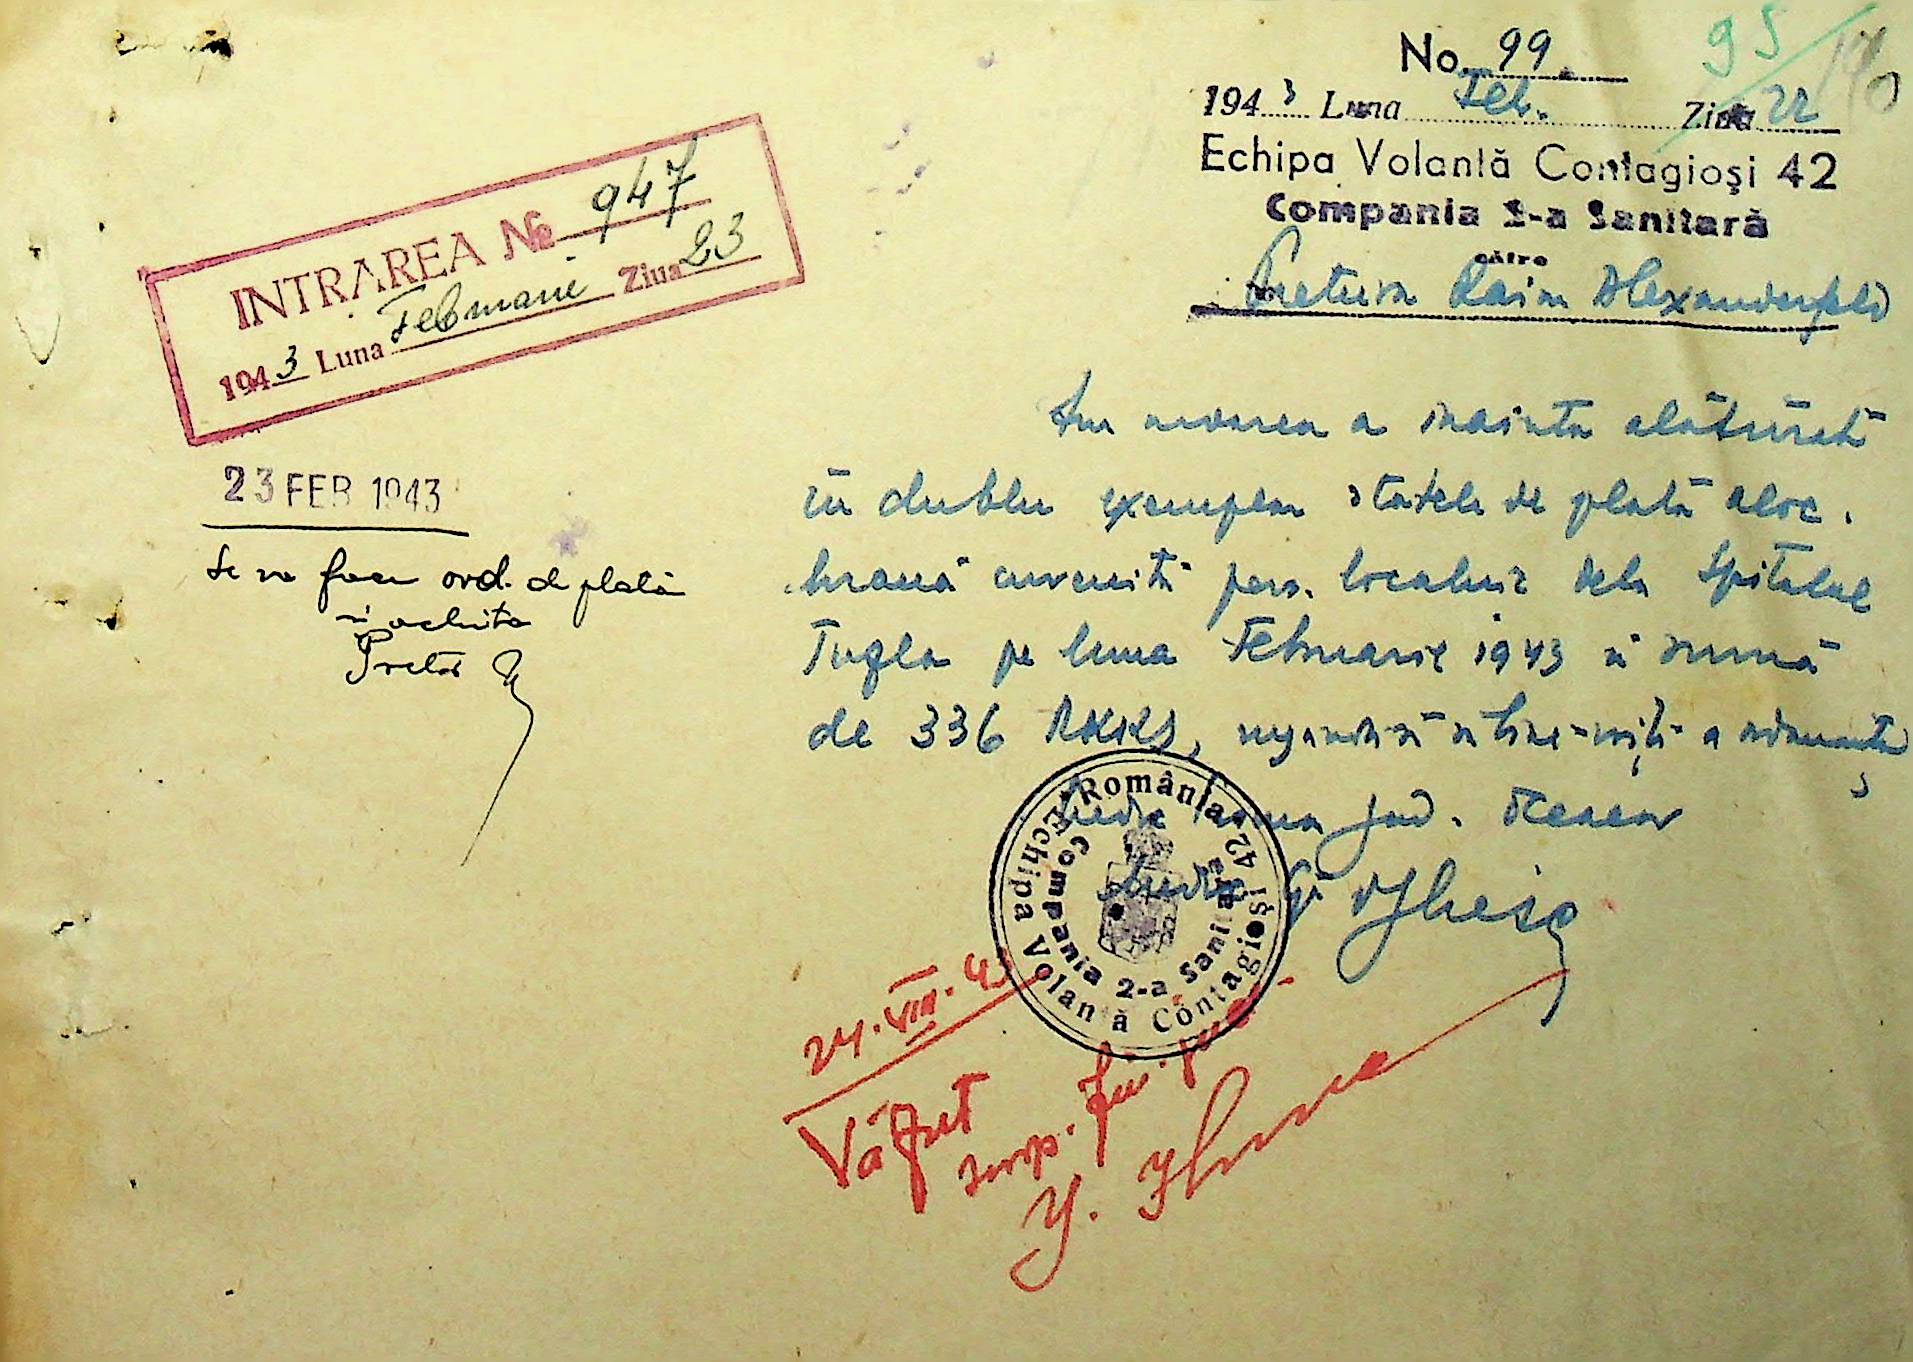 No. 99
95
1943 Luna Feb. Ziua 22
Echipa Volantă Contagioşi 42
Compania 2-a Sanitară
către
Pretura Raion Alexanderfeld
INTRAREA No 947
1943 Luna Februarie Ziua 23
23 FEB 1943
Se va face ord. de plată
şi achita
Pretor
Am onoarea a înainta alăturat
în dublu exemplar statele de plată aloc.
hrană cuvenită pers. localnic dela Spitalul
pe luna Februarie 1943 în sumă
de 336 RKKS, a
jud.
România
Echipa Volantă Contagioşi 42
Compania 2-a Sanitară
24.VIII.43
Văzut
insp. fin.